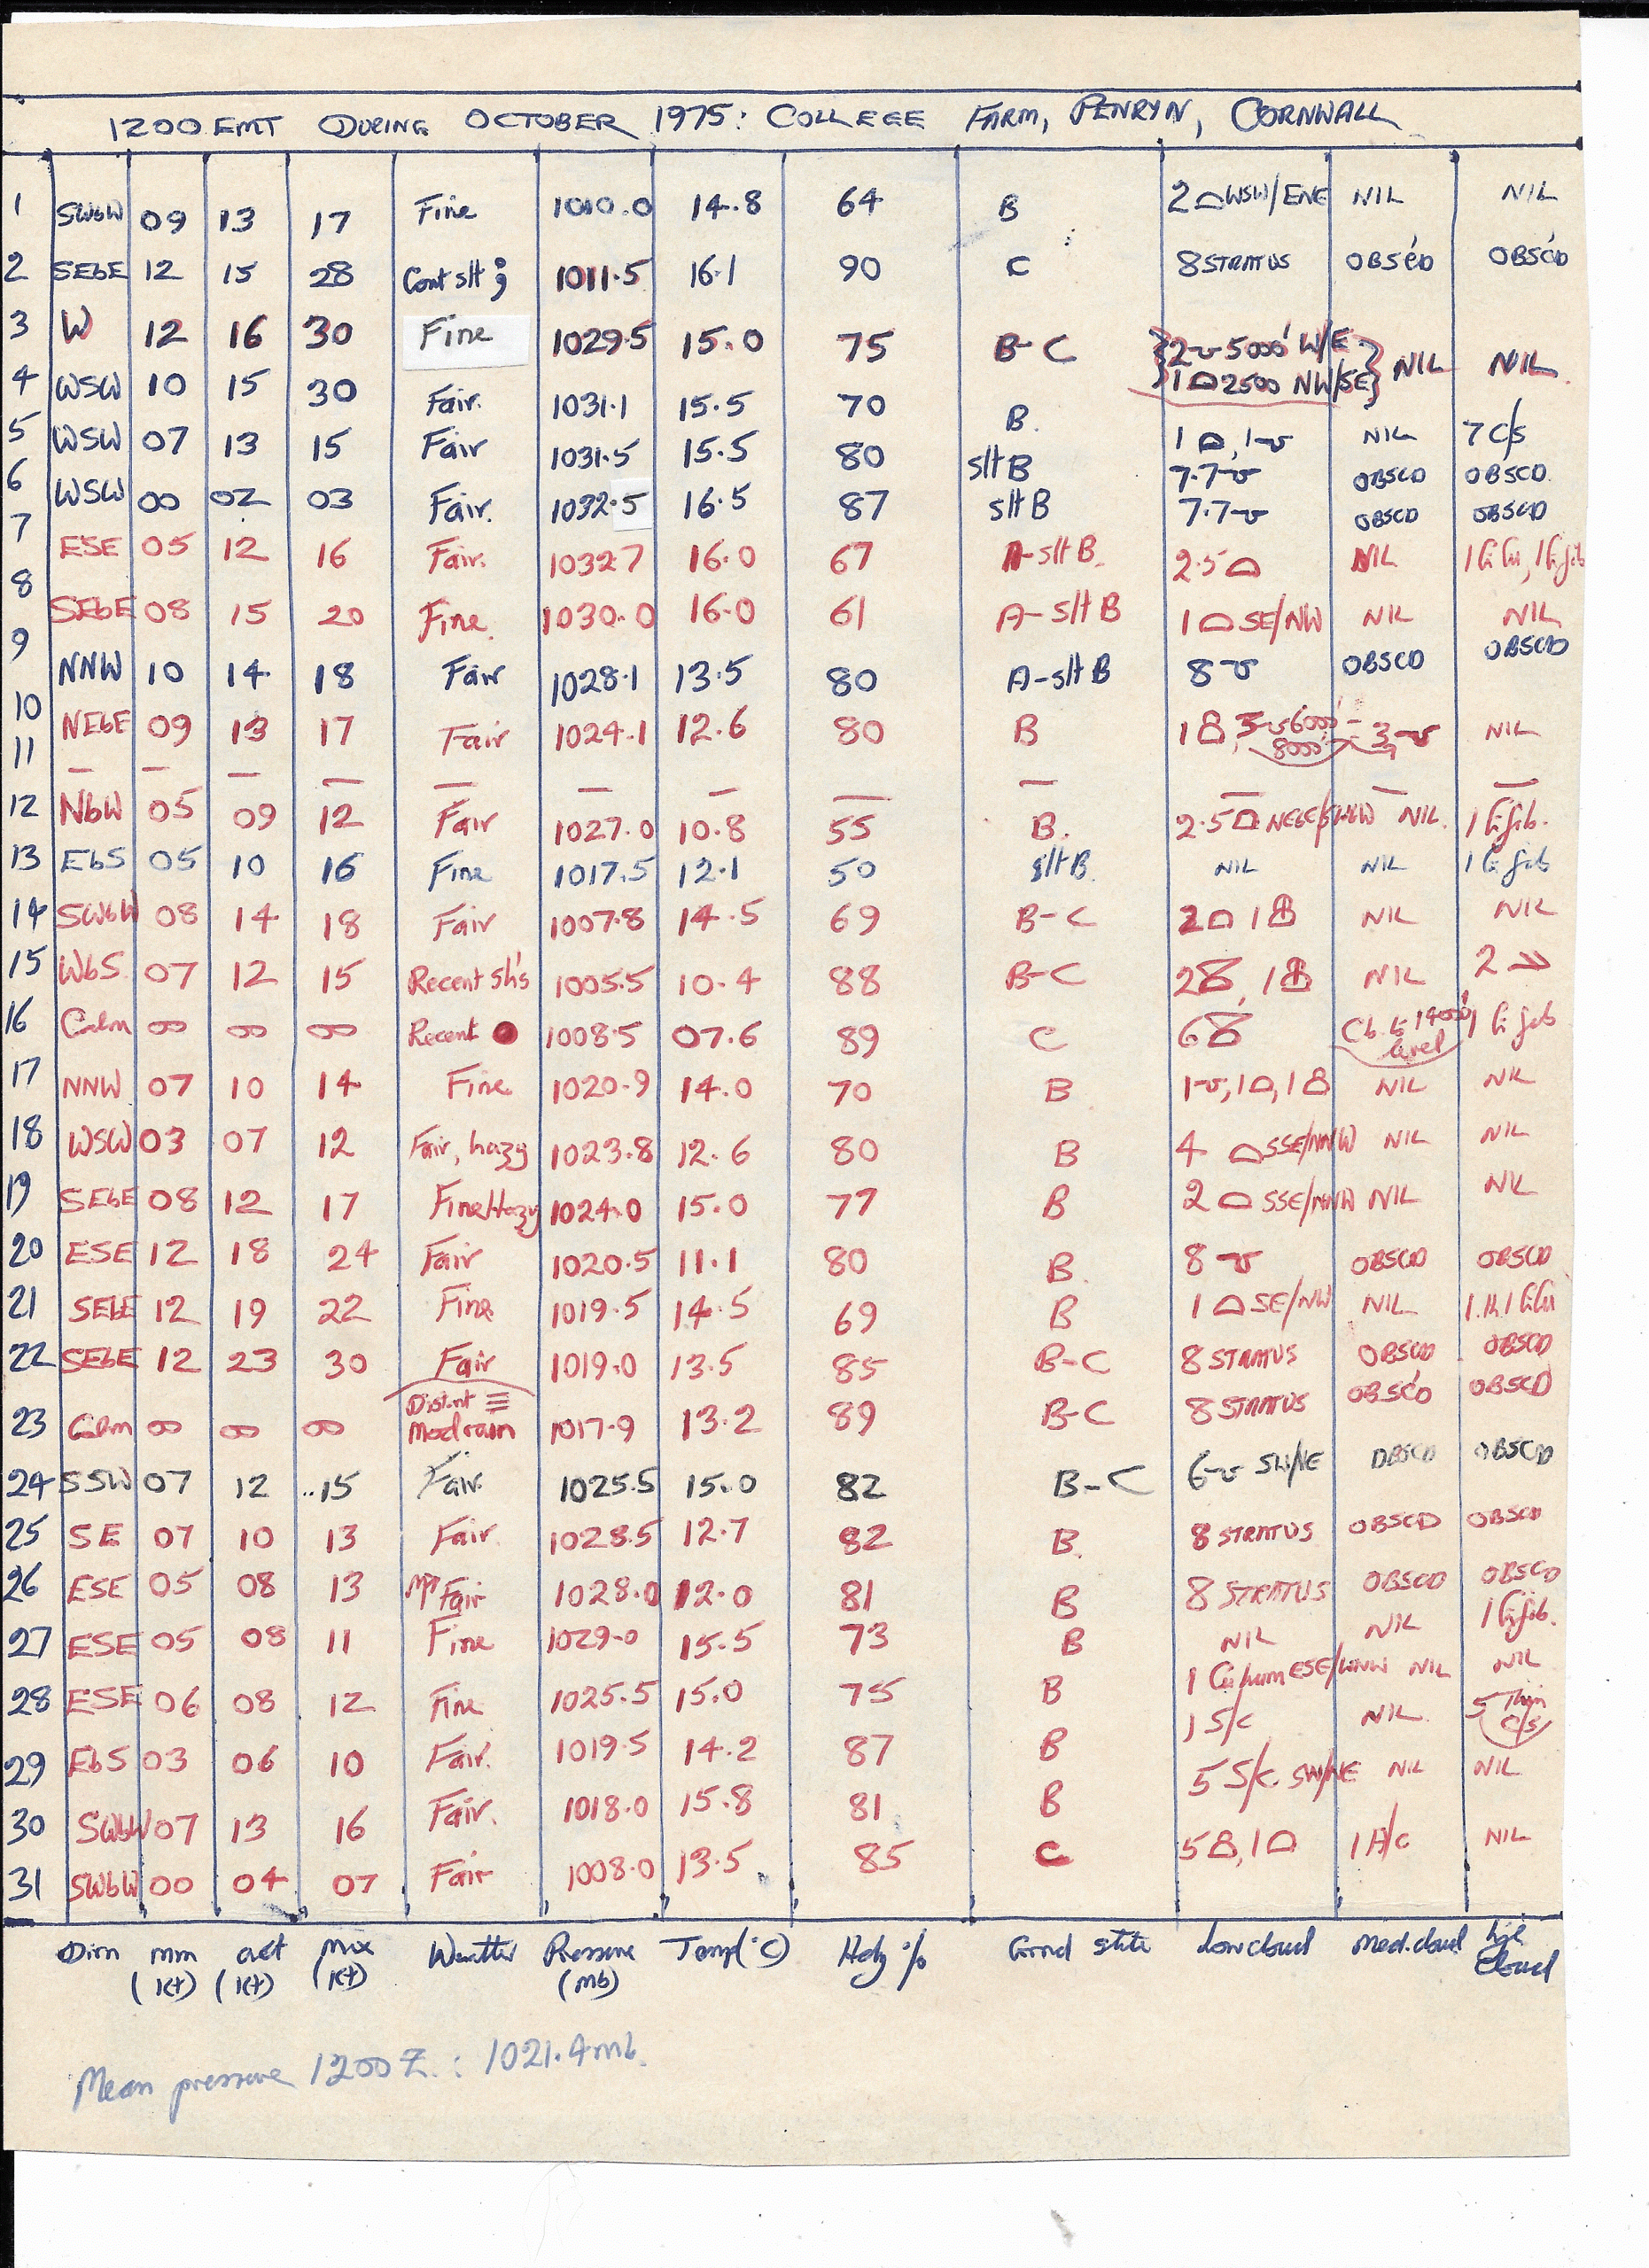 1200 GMT DURING OCTOBER 1975: COLLEGE FARM, PENRYN, CORNWALL
1 SWbW 09 13 17 Fine 1010.0 14.8 64 B 2 WSW/ENE NIL NIL
2 SEbE 12 15 28 Cont slt 1011.5 16.1 90 C 8 STRATUS OBSC'D OBSC'D
3 W 12 16 30 Fine 1029.5 15.0 75 B-C 2 5000' W/E NIL NIL
1 2500 NW/SE
4 WSW 10 15 30 Fair. 1031.1 15.5 70 B.
5 WSW 07 13 15 Fair 1031.5 15.5 80 slt B 1 , 1 NIL 7 C/s
7.7 OBSCD OBSCD.
6 WSW 00 02 03 Fair. 1032.5 16.5 87 slt B 7.7 OBSCD OBSCD
7 ESE 05 12 16 Fair. 1032.7 16.0 67 A-slt B. 2.5 NIL
8 SEbE 08 15 20 Fine. 1030.0 16.0 61 A-slt B 1 SE/NW NIL NIL
9 NNW 10 14 18 Fair 1028.1 13.5 80 A-slt B 8 OBSCD OBSCD
10 NEbE 09 13 17 Fair 1024.1 12.6 80 B 1 6000' 3 NIL
8000'
11 — — — — — — — — — — — —
12 NbW 05 09 12 Fair 1027.0 10.8 55 B. 2.5 NEbE/SWbW NIL. 1 Ci fib.
13 EbS 05 10 16 Fine 1017.5 12.1 50 slt B. NIL NIL 1 Ci fib
14 SWbW 08 14 18 Fair 1007.8 14.5 69 B-C 2 1 NIL NIL
15 WbS 07 12 15 Recent sh's 1005.5 10.4 88 B-C 2 , 1 NIL 2
16 Calm 00 00 00 Recent 1008.5 07.6 89 C 6 Cb to 14000' 1 Ci fib
level
17 NNW 07 10 14 Fine 1020.9 14.0 70 B 1 , 1 , 1 NIL NIL
18 WSW 03 07 12 Fair, hazy 1023.8 12.6 80 B 4 SSE/NNW NIL NIL
19 SEbE 08 12 17 Fine Hazy 1024.0 15.0 77 B 2 SSE/NNW NIL NIL
20 ESE 12 18 24 Fair 1020.5 11.1 80 B. 8 OBSCD OBSCD
21 SEbE 12 19 22 Fine 1019.5 14.5 69 B 1 SE/NW NIL
22 SEbE 12 23 30 Fair 1019.0 13.5 85 B-C 8 STRATUS OBSCD OBSCD
Distnt ≡
23 Calm 00 00 00 Mod rain 1017.9 13.2 89 B-C 8 STRATUS OBSC'D OBSCD
24 SSW 07 12 15 Fair. 1025.5 15.0 82 B-C 6 SW/NE OBSCD OBSCD
25 SE 07 10 13 Fair. 1028.5 12.7 82 B. 8 STRATUS OBSCD OBSCD
26 ESE 05 08 13 Fair 1028.0 12.0 81 B 8 STRATUS OBSCD OBSCD
27 ESE 05 08 11 Fine 1029.0 15.5 73 B NIL NIL 1 Ci fib.
28 ESE 06 08 12 Fine 1025.5 15.0 75 B 1 Cu hum ESE/WNW NIL NIL
29 EbS 03 06 10 Fair. 1019.5 14.2 87 B 1 S/c NIL. 5 Thin C/s
30 SWbW 07 13 16 Fair. 1018.0 15.8 81 B 5 S/c. SW/NE NIL NIL
31 SWbW 00 04 07 Fair 1008.0 13.5 85 C 5 , 1 1 A/c NIL
Dirn min (kt) act (kt) max (kt) Weather Pressure (mb) Temp (°C) Hdy % Grnd state Low cloud Med. cloud high cloud
Mean pressure 1200 Z.: 1021.4 mb.